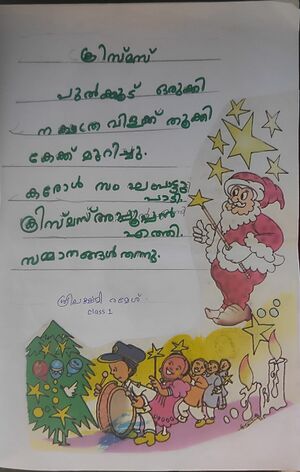 ക്രിസ്മസ്
പുൽക്കൂട് ഒരുക്കി
നക്ഷത്ര വിളക്ക് തൂക്കി
കേക്ക് മുറിച്ചു.
കരോൾ സംഘമെത്തി
പാടി.
ക്രിസ്മസ് അപ്പൂപ്പൻ
എത്തി.
സമ്മാനങ്ങൾ തന്നു.
രമേശ്
class 1